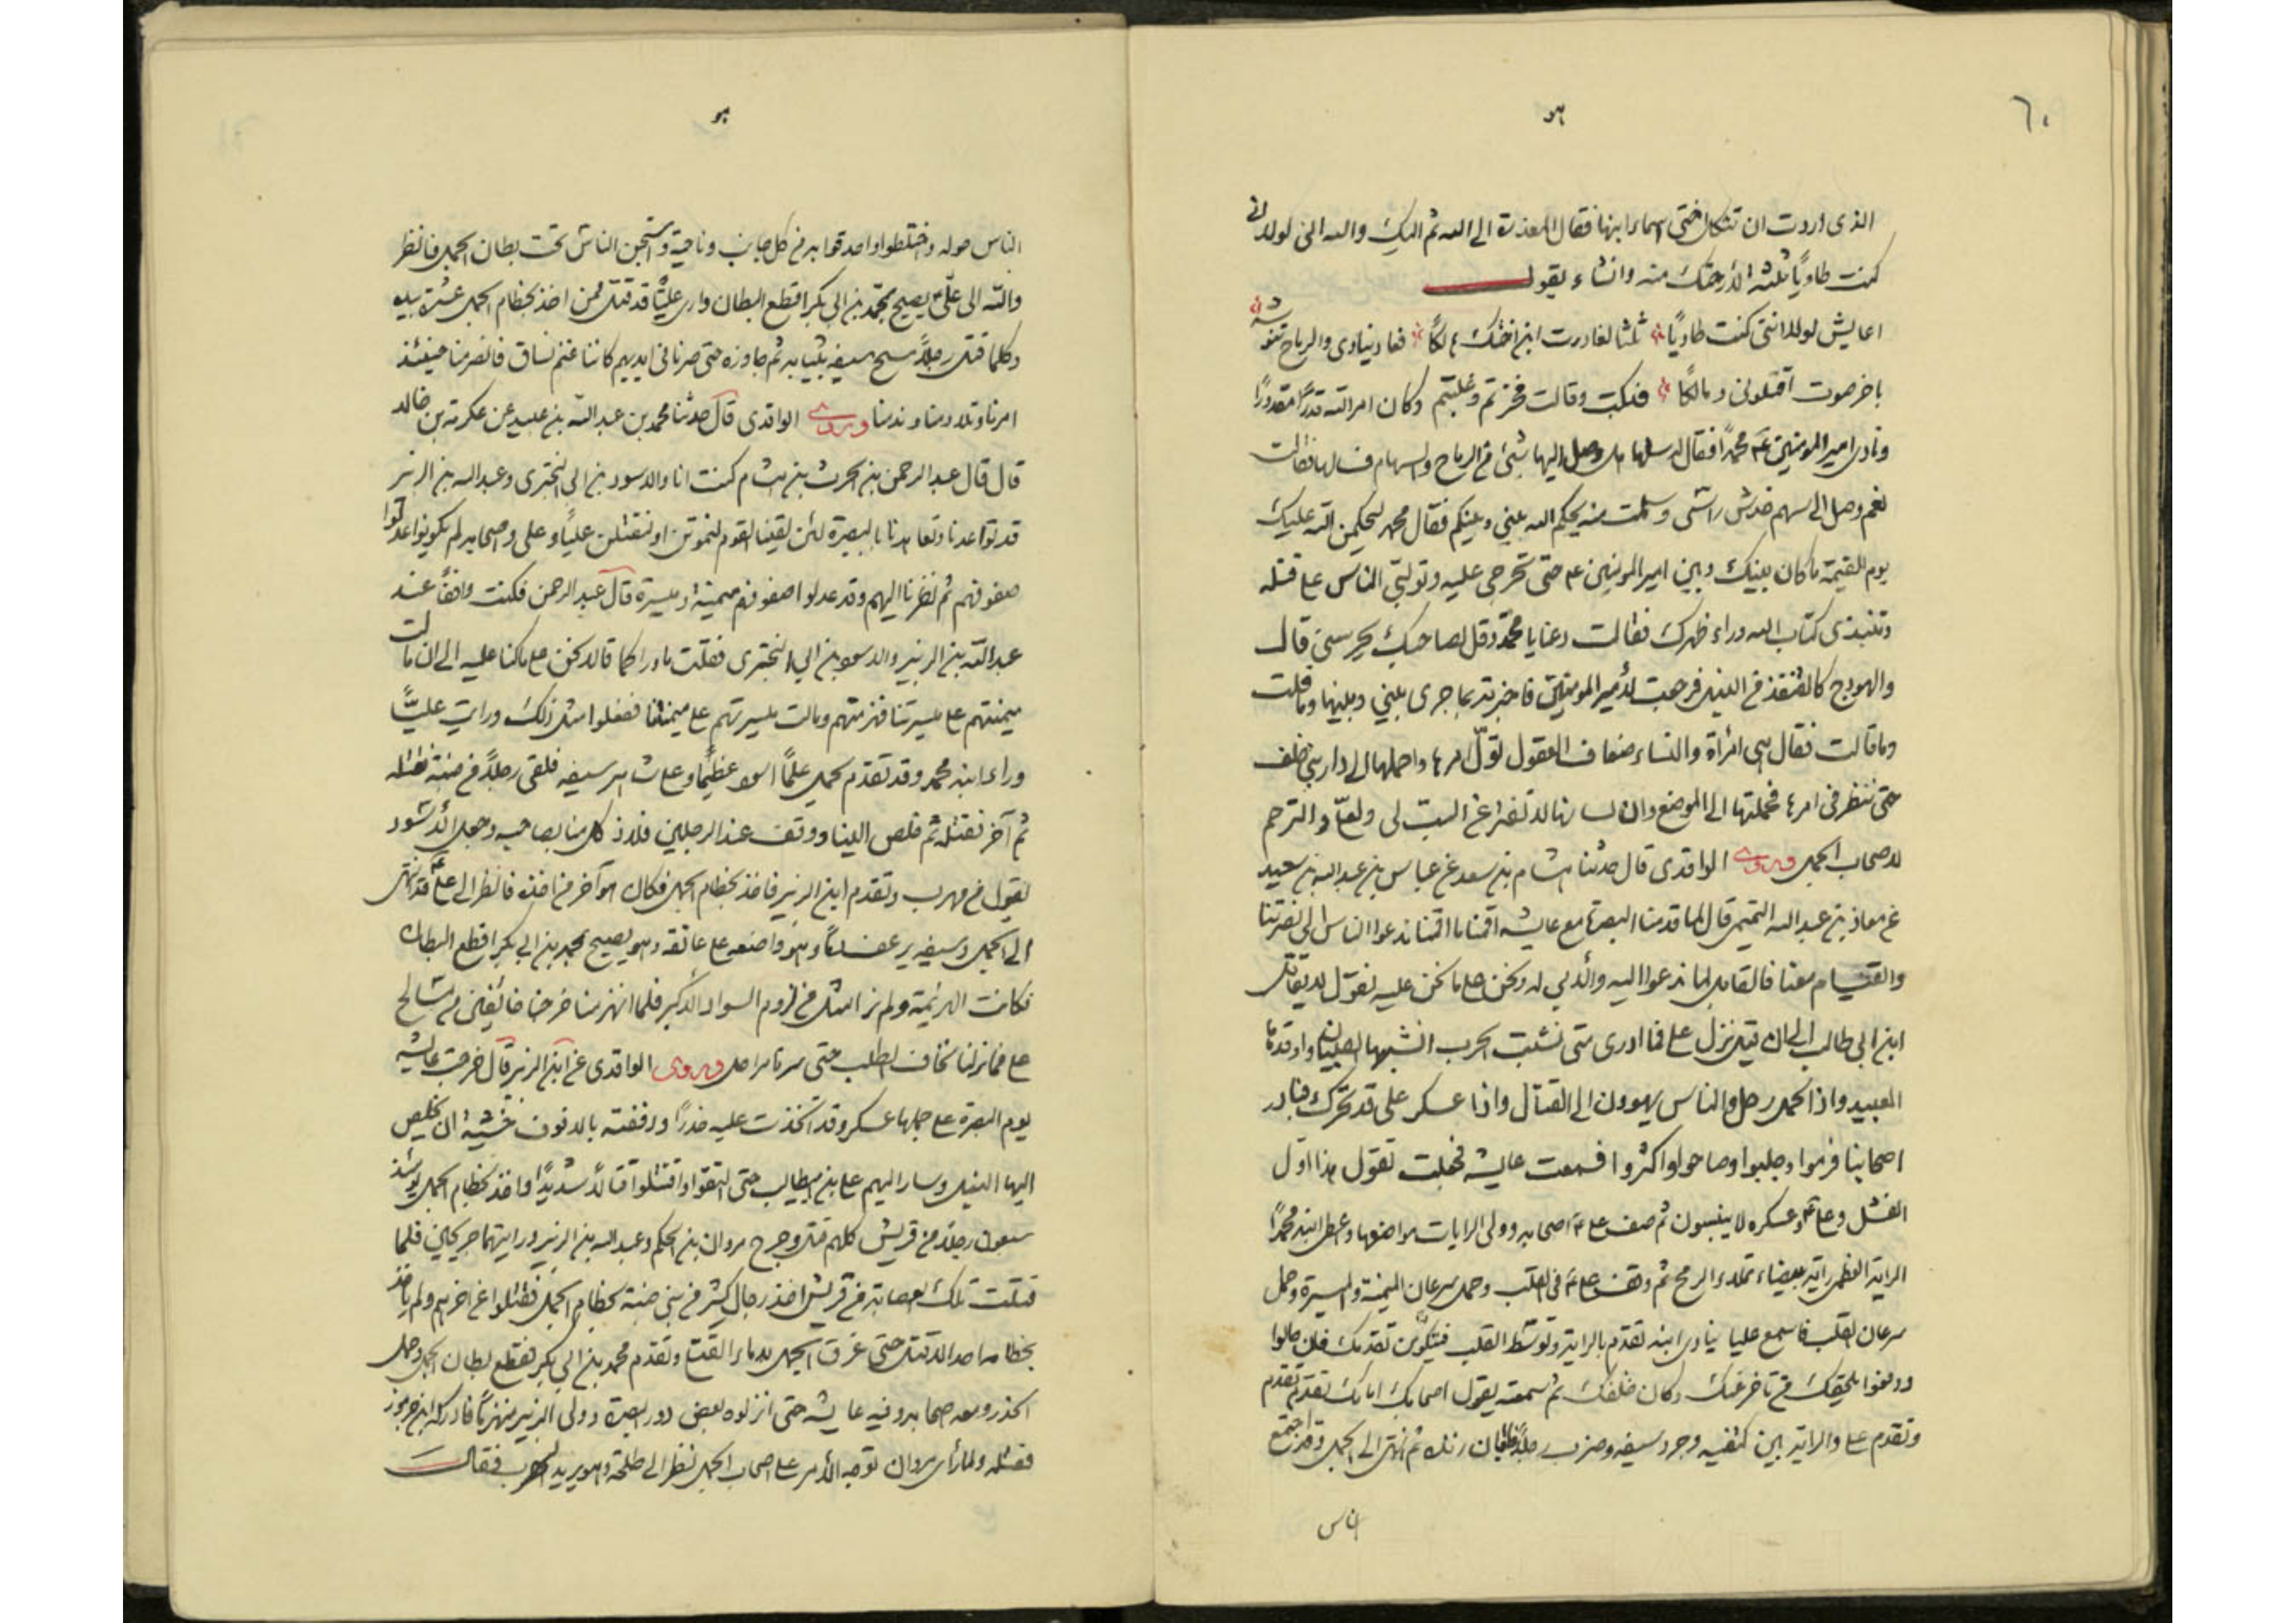 ٦٠
هو
الذى اردت ان تثكل اختى اسماء ابنها فقال المعذرة الى الله ثم اليك والله انى لولا انى
كنت طاويا ثلثة لأرحتك منه وانشاء يقول
اعايش لولا اننى كنت طاويًا ثلثا لغادرت ابن اختك هالكًا فعاد ينادى والرياح تنوشه
باخر صوت اقتلونى ومالكًا فبكت وقالت فخرتم وغلبتم وكان امر الله قدرًا مقدورًا
ونادى امير المؤمنين ع محمدًا فقال سلها هل وصل اليها شئ من الرماح والسهام فسالها فقالت
نعم وصل الى سهم خدش راسى وسلمت منه يحكم الله بينى وبينكم فقال محمد ليحكمن الله عليك
يوم القيمة ما كان بينك وبين امير المؤمنين ع حتى تخرجى عليه وتولبى الناس على قتله
وتنبذى كتاب الله وراء ظهرك فقالت دعنا يا محمد وقل لصاحبك يحرسنى قال
والهودج كالقنفذ من النبل فرجعت لأمير المؤمنين فاخبرته بما جرى بينى وبينها وما قلت
وما قالت فقال هى امرأة والنساء ضعاف العقول تول امرها واحملها الى دار بنى خلف
حتى ننظر فى امرها فحملتها الى الموضع وان لسانها لا تفتر عن السب لى ولعلى والترحم
لاصحاب الجمل وروى الواقدى قال حدثنا هشام بن سعد عن عباس بن عبد الله بن سعيد
عن معاذ بن عبد الله التميمى قال لما قدمنا البصرة مع عايشه اقمنا ما اقمنا ندعوا الناس الى نصرتنا
والقيام معنا فالقابل لما ندعوا اليه والأبى له ونحن على ما نحن عليه نقول لا يقاتل
ابن ابى طالب الى ان قيل نزل على فما ادرى حتى نشبت الحرب انشبها الصبيان واوقدها
العبيد واذا الجمل رحل والناس يهوون الى القتال واذا عسكر على قد تحرك فبادر
اصحابنا فرموا وجلبوا وصاحوا واكثروا فسمعت عايشه فجعلت تقول هذا اول
الفشل وعلى ع وعسكره لا ينبسون ثم صف على ع اصحابه وولى الرايات مواضعها واعطى ابنه محمدًا
الراية العظمى راية بيضاء تملاء الرمح ثم وقف على ع فى القلب وحمل سرعان الميمنة والميسرة وحمل
سرعان القلب فاسمع عليا ينادى ابنه تقدم بالراية وتوسط القلب فيكون تقدمك فان جالوا
ودفعوا يلحقك من تاخر عنك وكان خلفك ثم سمعته يقول اصحابك امامك تقدم تقدم
وتقدم على والراية بين كتفيه وجرد سيفه وضرب رجلًا فابان زنده ثم انتهى الى الجمل وقد اجتمع
الناس
هو
الناس حوله واختلطوا واحدقوا به من كل جانب وناحية واستجن الناس تحت بطان الجمل فانظر
والله الى على ع يصيح بمحمد بن ابى بكر اقطع البطان وارى عليًا قد قتل ممن اخذ بخطام الجمل عشرة بيده
وكلما قتل رجلًا مسح سيفه بثيابه ثم جاوزه حتى صرنا فى ايديهم كاننا غنم نساق فانصرمنا حينئذ
امرنا وتلاومنا وندمنا وروى الواقدى قال حدثنا محمد بن عبد الله بن عبيد عن عكرمة بن خالد
قال قال عبد الرحمن بن الحرث بن هشام كنت انا والاسود بن ابى البخترى وعبد الله بن الزبير
قد تواعدنا وتعاهدنا بالبصرة لئن لقينا القوم لنموتن او لنقتلن عليًا وعلى واصحابه لم يكونوا عدلوا
صفوفهم ثم نظرنا اليهم وقد عدلوا صفوفهم ميمنة وميسرة قال عبد الرحمن فكنت واقفًا عند
عبد الله بن الزبير والاسود بن ابى البخترى فقلت ما وراكما قالا نحن على ما كنا عليه الى ان مالت
ميمنتهم على ميسرتنا فهزمتهم ومالت ميسرتهم على ميمنتنا ففعلوا مثل ذلك ورايت عليًا
وراء ابنه محمد وقد تقدم يحمل علمًا اسود عظيمًا وعلى شاهر سيفه فلقى رجلًا من ضبة فقتله
ثم آخر فقتله ثم خلص الينا ووقف عند الرجلين فلاذ كل منا بصاحبه وجعل الاسود
يقول من مهرب وتقدم ابن الزبير فاخذ بخطام الجمل فكان هو آخر من اخذه فانظر الى على ع قد انتهى
الى الجمل وسيفه يرعف دمًا وهو واضعه على عاتقه وهو يصيح بمحمد بن ابى بكر اقطع البطان
فكانت الهزيمة ولم نر امثل من لزوم السواد الاكبر فلما انهزمنا خرجنا خائفين من مسالح
على فما نزلنا نخاف الطلب حتى سرنا مراحل وروى الواقدى عن ابن الزبير قال خرجت عايشه
يوم البصرة على جملها عسكر وقد اتخذت عليه خدرًا ودففته بالدفوف خشية ان يخلص
اليها النبل وسار اليهم على بن ابيطالب حتى التقوا واقتتلوا قتالًا شديدًا واخذ بخطام الجمل يومئذ
سبعون رجلًا من قريش كلهم قتل وجرح مروان بن الحكم وعبد الله بن الزبير ورايتهما جريحين فلما
قتلت تلك العصابة من قريش اخذ رجال كثير من بنى ضبة بخطام الجمل فقتلوا عن اخرهم ولم ياخذ
بخطامه احد الا قتل حتى غرق الجمل بدماء القتلى وتقدم محمد بن ابى بكر فقطع بطان الجمل وحمل
الخدر ومعه اصحابه وفيه عايشة حتى انزلوه بعض دور البصرة وولى الزبير منهزمًا فادركه ابن جرموز
فقتله ولما رأى مروان توجه الأمر على اصحاب الجمل نظر الى طلحة وهو يريد الهرب فقال